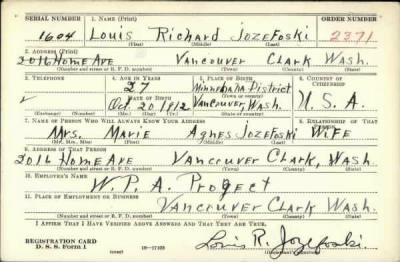 SERIAL NUMBER 1. NAME (Print) ORDER NUMBER
1604 Louis Richard Jozefoski 2371
(First) (Middle) (Last)
2. ADDRESS (Print)
2016 Home Ave Vancouver Clark Wash.
(Number and street or R. F. D. number) (Town) (County) (State)
3. TELEPHONE 4. AGE IN YEARS 5. PLACE OF BIRTH 6. COUNTRY OF CITIZENSHIP
27 Minnehaha District
(Town or county)
DATE OF BIRTH
Oct. 20 1912 Vancouver, Wash. U. S. A.
(Exchange) (Number) (Mo.) (Day) (Yr.) (State or country)
7. NAME OF PERSON WHO WILL ALWAYS KNOW YOUR ADDRESS 8. RELATIONSHIP OF THAT PERSON
Mrs. Marie Agnes Jozefoski Wife
(Mr., Mrs., Miss) (First) (Middle) (Last)
9. ADDRESS OF THAT PERSON
2016 Home Ave Vancouver Clark, Wash.
(Number and street or R. F. D. number) (Town) (County) (State)
10. EMPLOYER'S NAME
W. P. A. Project
11. PLACE OF EMPLOYMENT OR BUSINESS
Vancouver Clark Wash.
(Number and street or R. F. D. number) (Town) (County) (State)
I AFFIRM THAT I HAVE VERIFIED ABOVE ANSWERS AND THAT THEY ARE TRUE.
REGISTRATION CARD
D. S. S. Form 1 (over) 16—17105 Louis R. Jozefoski